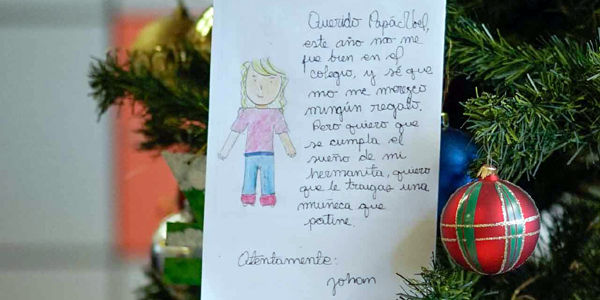 Querido Papá Noel,
este año no me
fue bien en el
colegio, y sé que
no me merezco
ningún regalo.
Pero quiero que
se cumpla el
sueño de mi
hermanita, quiero
que le traigas una
muñeca que
patine.
Atentamente:
Johan